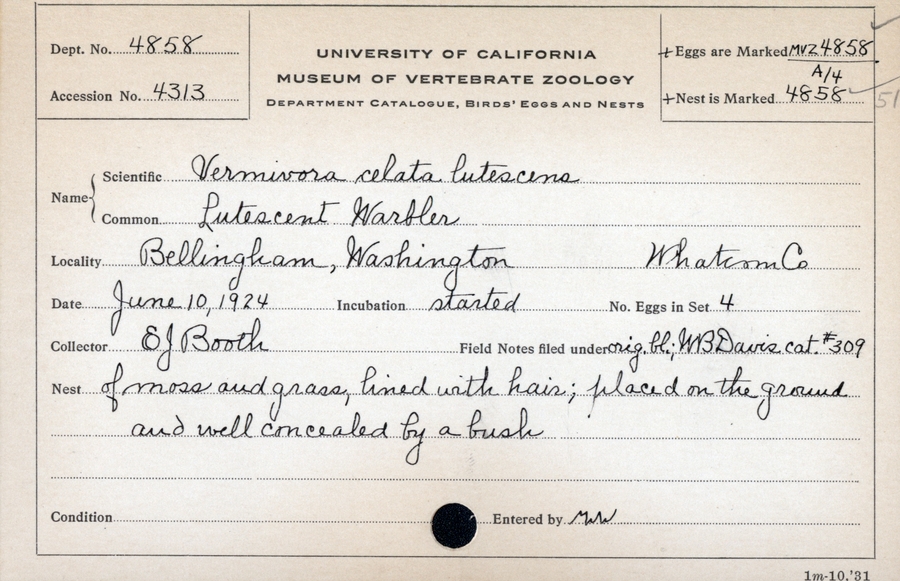 Dept. No. 4858
Accession No. 4313
UNIVERSITY OF CALIFORNIA
MUSEUM OF VERTEBRATE ZOOLOGY
DEPARTMENT CATALOGUE, BIRDS' EGGS AND NESTS
+ Eggs are Marked MVZ 4858
A/4
+ Nest is Marked 4858
51
Name
Scientific Vermivora celata lutescens
Common Lutescent Warbler
Locality Bellingham, Washington Whatcom Co
Date June 10, 1924 Incubation started No. Eggs in Set 4
Collector EJ Booth Field Notes filed under orig. bl.; WB Davis cat. #309
Nest of moss and grass, lined with hair; placed on the ground
and well concealed by a bush
Condition Entered by
1m-10,'31